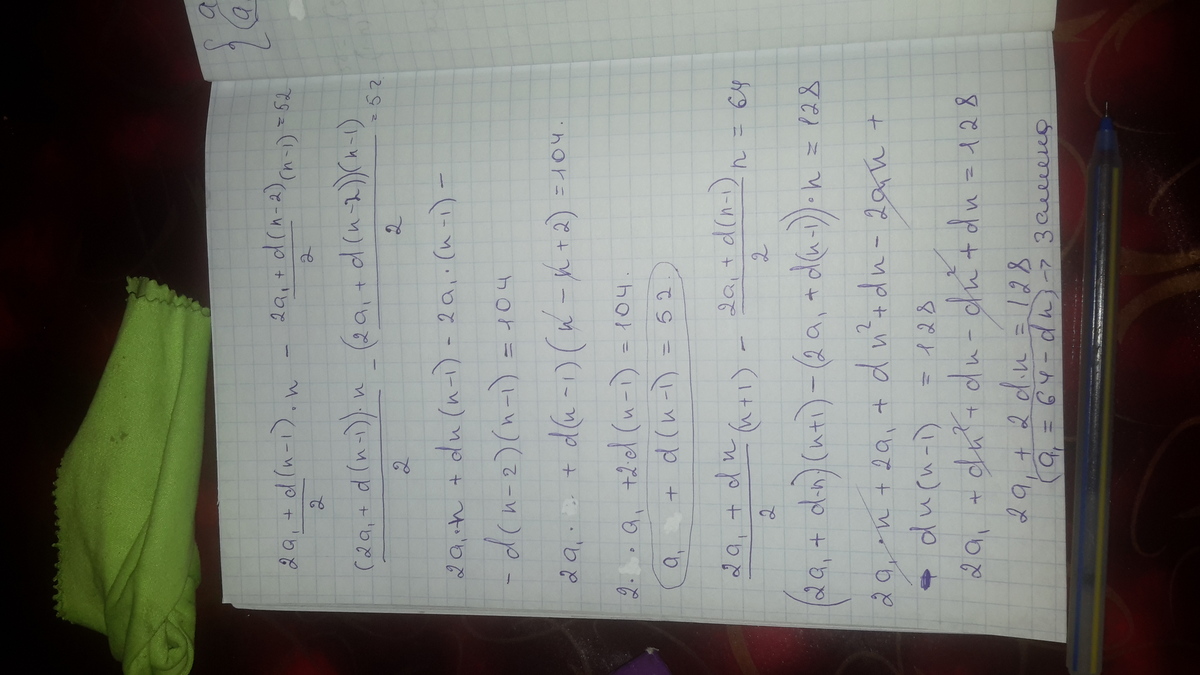 { a
(a
2a₁ + d(n-1)/2 · n - 2a₁ + d(n-2)/2 (n-1) = 52
(2a₁ + d(n-1)) · n/2 - (2a₁ + d(n-2))(n-1)/2 = 52
2a₁·n + dn(n-1) - 2a₁·(n-1) -
- d(n-2)(n-1) = 104
2a₁ · + d(n-1)(n - n + 2) = 104.
2 · a₁ + 2d(n-1) = 104.
a₁ + d(n-1) = 52.
2a₁ + dn/2 (n+1) - 2a₁ + d(n-1)/2 n = 64
(2a₁ + d·n)(n+1) - (2a₁ + d(n-1))·n = 128
2a₁·n + 2a₁ + dn² + dn - 2a₁n +
dn(n-1) = 128
2a₁ + dn² + dn - dn² + dn = 128
2a₁ + 2d·n = 128
(a₁ = 64 - dn) → замена